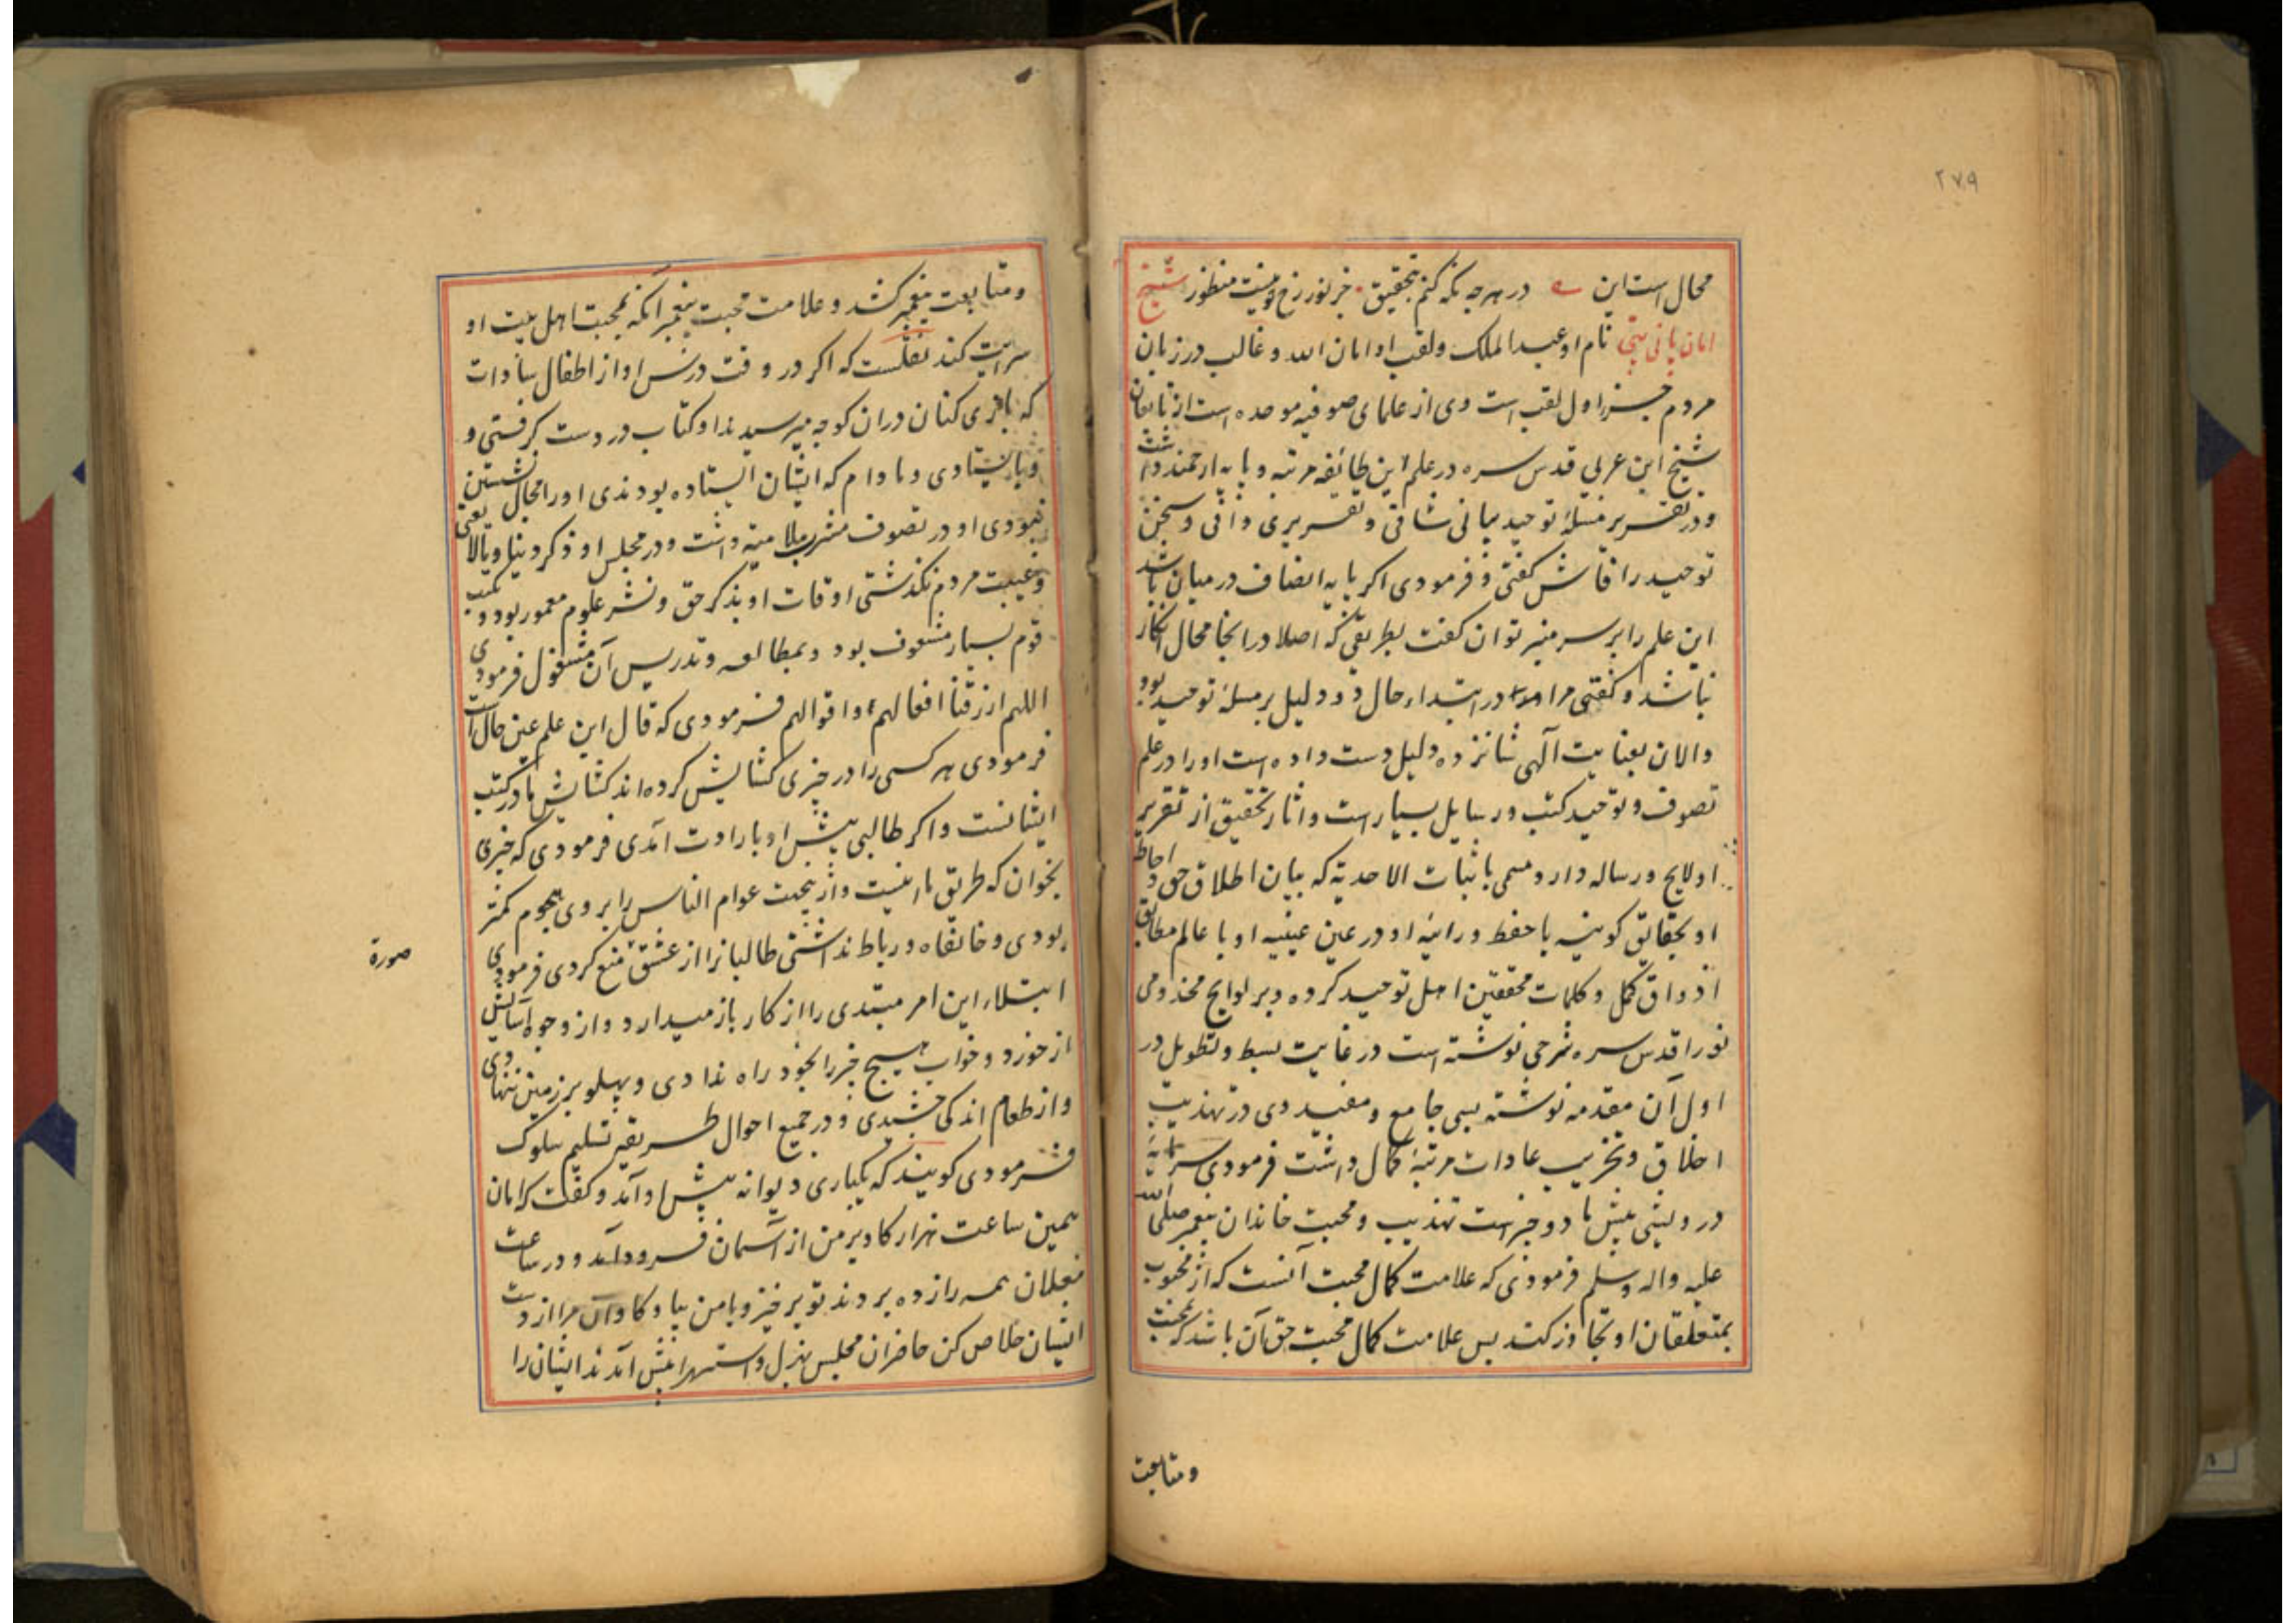 ۲۷۹
محال است این در هر چه نکه کنم بتحقیق جز نور رخ تو نیست منظور شیخ
امان پانی پتی نام او عبد الملک ولقب او امان الله وغالب در زبان
مردم جزو اول لقب است وی از علمای صوفیه موحده است از تابعان
شیخ ابن عربی قدس سره در علم این طائفه مرتبه و پایه ارجمند داشت
ودر تقریر مسئله توحید بیانی شافی وتقریری وافی وسخن
توحید را فاش کفتی وفرمودی اکر پایه انصاف در میان باشد
این علم را بر سر منبر توان کفت بطریقی که اصلا در انجا محال انکار
نباشد وکفتی مرا در ابتداء حال دو دلیل بر مسئله توحید بود
والان بعنایت آلهی شانزده دلیل دست داده است او را در علم
تصوف وتوحید کتب ورسایل بسیار است واثار تحقیق از تقریر
او لایح ورساله دارد مسمی باثبات الاحدیة که بیان اطلاق حق واحاطه
او بحقایق کونیه با حفظ ورائیه او در عین عینیه او با عالم مطابق
اذواق کمل وکلمات محققین اهل توحید کرده وبر لوایح مخدومی
نورا قدس سره شرحی نوشته است در غایت بسط وتطویل در
اول آن مقدمه نوشته بسی جامع ومفید وی در تهذیب
اخلاق وتخریب عادات مرتبه کمال داشت فرمودی سرمایه
درویشی پیش ما دو چیز است تهذیب ومحبت خاندان پیغمبر صلی الله
علیه واله وسلم فرمودی که علامت کمال محبت آنست که از محبوب
بمتعلقان او تجاوز کند پس علامت کمال محبت حق آن باشد که بمحبت
ومتابعت
ومتابعت پیغمبر کشد وعلامت محبت پیغمبر آنکه بمحبت اهل بیت او
سرایت کند نقلست که اکر در وقت درس او از اطفال سادات
که بازی کنان دران کوچه میرسیدند او کتاب در دست کرفتی و
وبایستادی ومادام که ایشان ایستاده بودندی او را مجال نشستن
نبودی او در تصوف مشرب ملامتیه داشت ودر مجلس او ذکر دنیا ومالا یعنی
وغیبت مردم نکذشتی اوقات او بذکر حق ونشر علوم معمور بود وبکتب
قوم بسیار مشعوف بود وبمطالعه وتدریس آن مشغول فرمودی
اللهم ارزقنا افعالهم واقوالهم فرمودی که قال این علم عین حال است
فرمودی هر کسی را در چیزی کشایش کرده اند کشایش ما در کتب
ایشانست واکر طالبی پیش او بارادت آمدی فرمودی که چیزی
بخوان که طریق ما اینست وازینجهت عوام الناس را بر وی هجوم کمتر
بودی وخانقاه ورباط نداشتی طالبانرا از عشق منع کردی فرمودی
ابتلاء این امر مبتدی را از کار باز میدارد واز وجوه آسایش
از خورد وخواب هیچ چیز را بخود راه ندادی وپهلو بر زمین ننهادی
واز طعام اندکی چشیدی ودر جمیع احوال طریقه تسلیم سلوک
فرمودی کویند که یکباری دیوانه پیش او آمد وکفت که امان
همین ساعت هزار کاو بر من از آسمان فرود آمد ودر ساعت
مغلان همه را زده بردند تو بر خیز وبا من بیا وکاوان مرا از دست
ایشان خلاص کن حاضران مجلس بهزل واستهزا پیش آمدند ایشان را
صورة